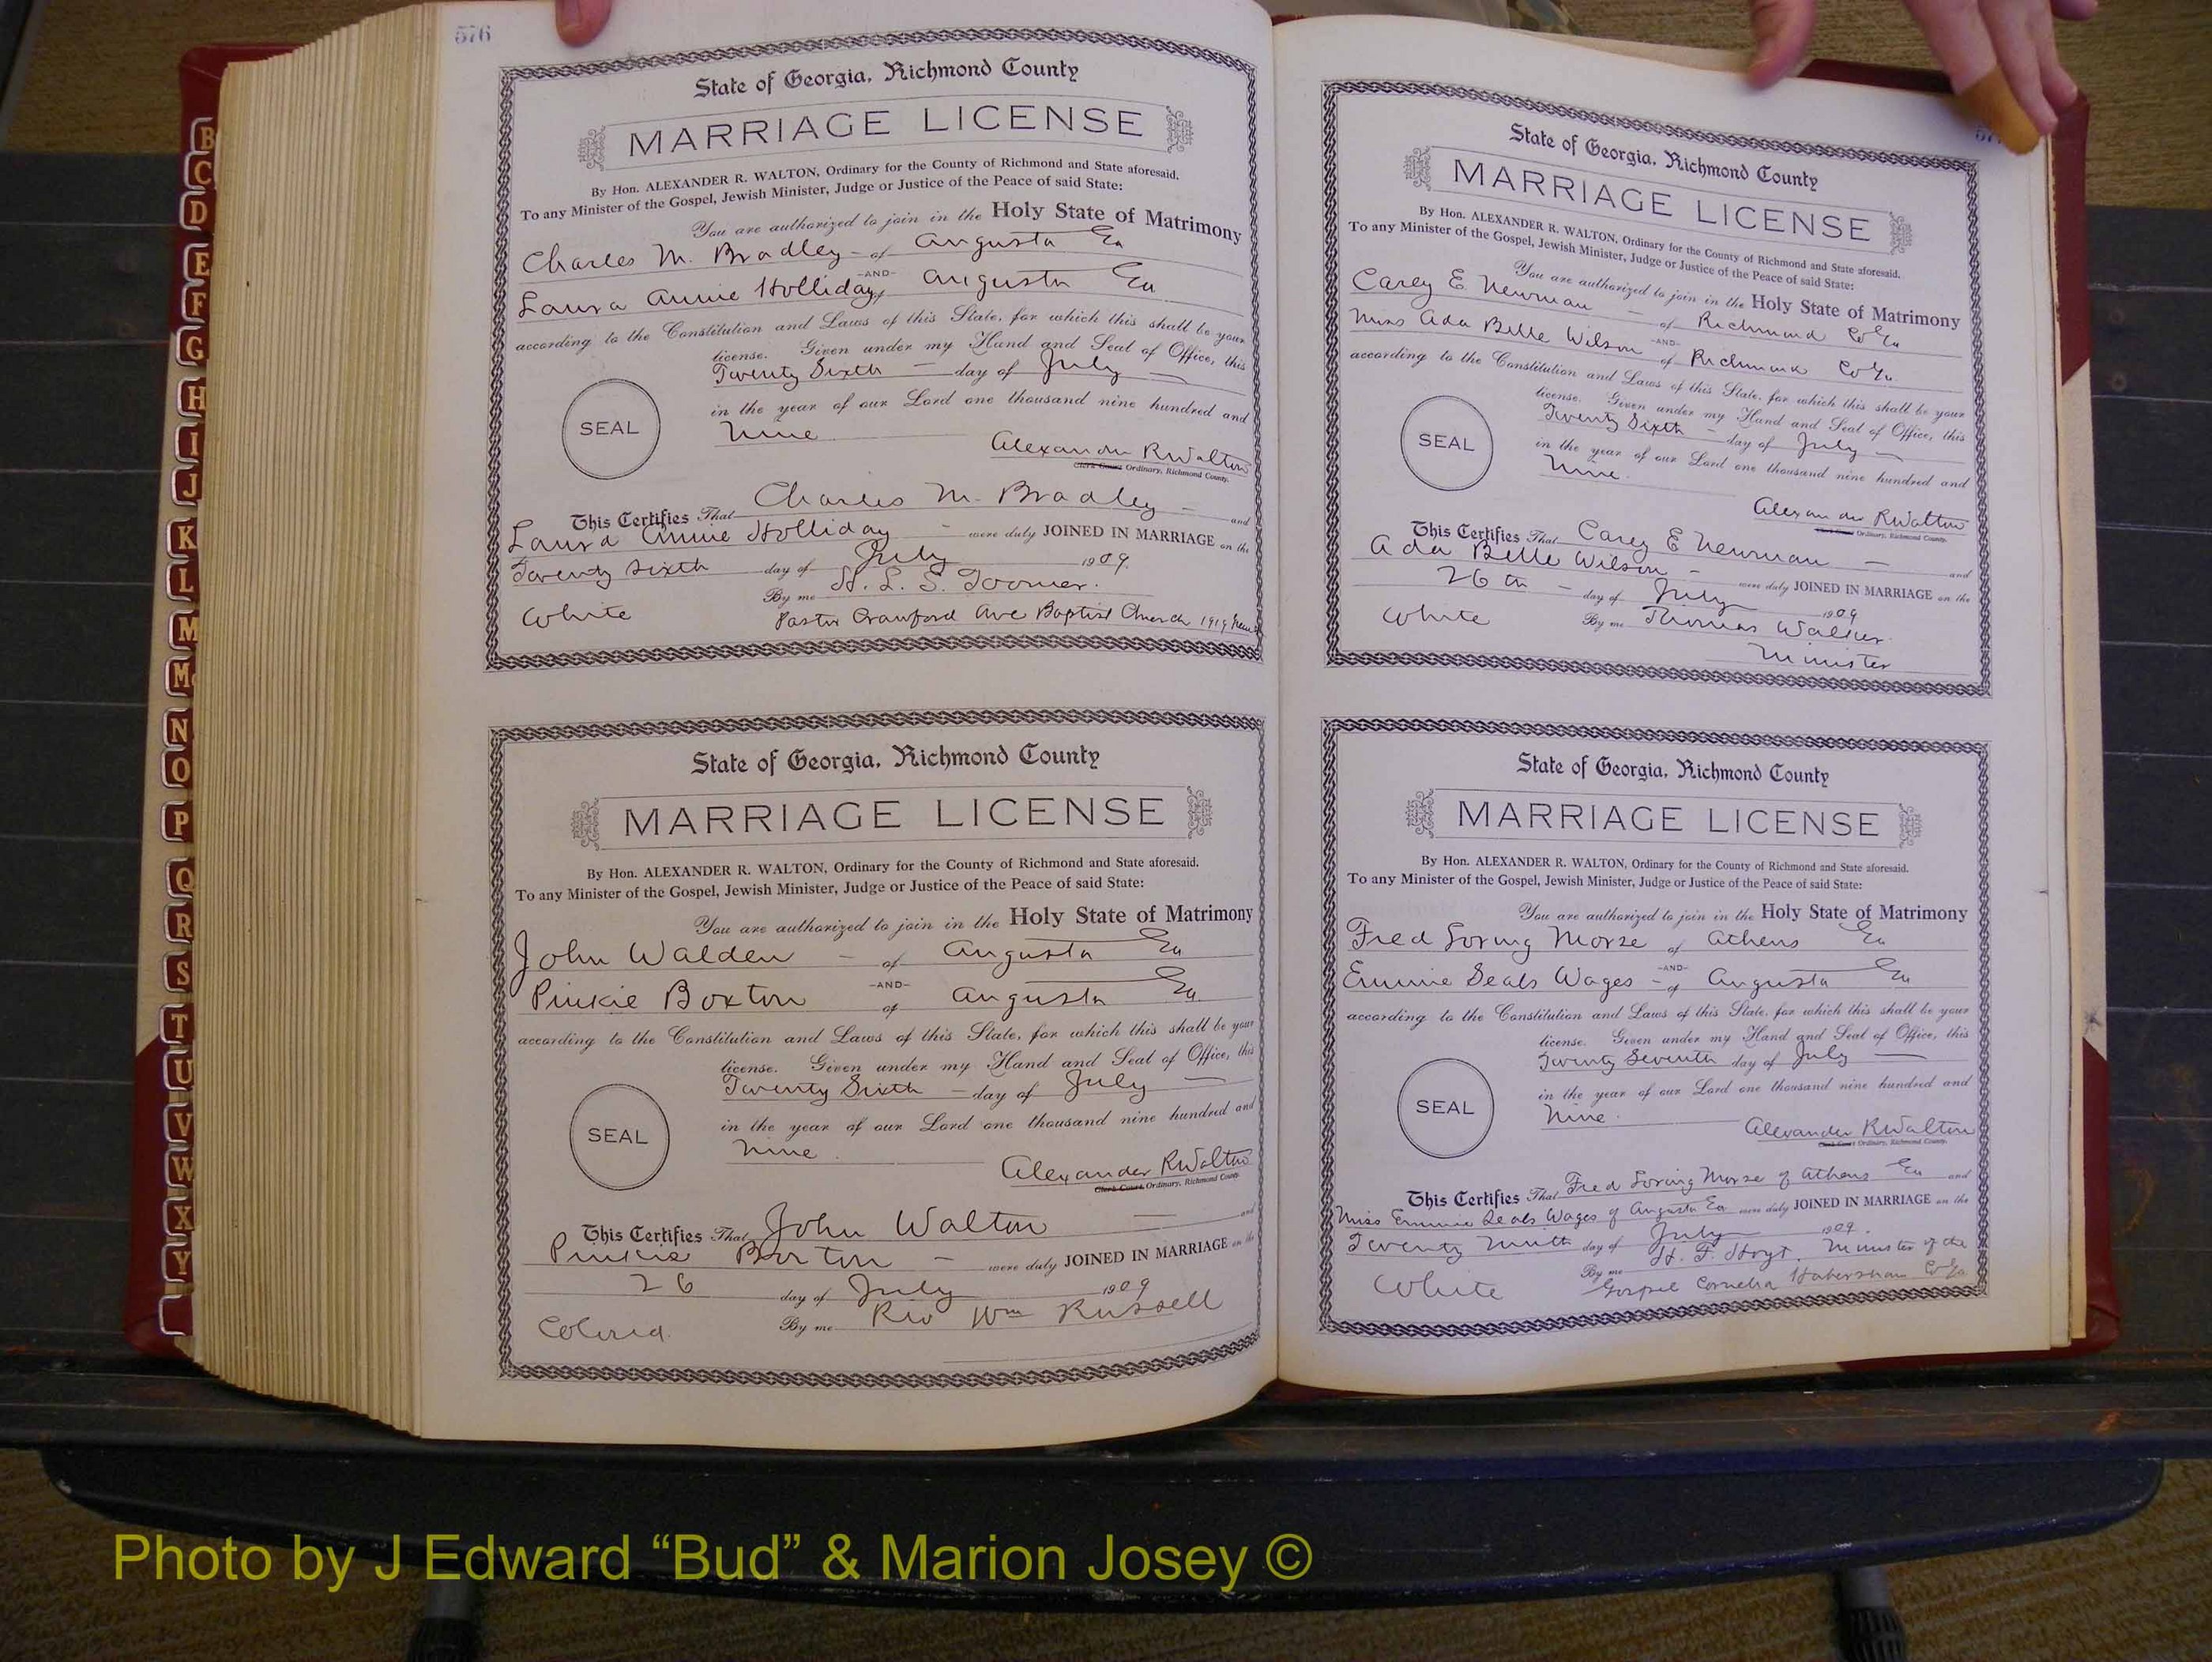 576
State of Georgia, Richmond County
MARRIAGE LICENSE
By Hon. ALEXANDER R. WALTON, Ordinary for the County of Richmond and State aforesaid.
To any Minister of the Gospel, Jewish Minister, Judge or Justice of the Peace of said State:
You are authorized to join in the Holy State of Matrimony
Charles M. Bradley - of Augusta Ga
-AND-
Laura Annie Holliday, Augusta Ga
according to the Constitution and Laws of this State, for which this shall be your
license. Given under my Hand and Seal of Office, this
Twenty Sixth - day of July -
SEAL
in the year of our Lord one thousand nine hundred and
Nine
Alexander R Walton
Clerk Court Ordinary, Richmond County.
This Certifies That Charles M. Bradley - and
Laura Annie Holliday - were duly JOINED IN MARRIAGE on the
Twenty Sixth day of July 1909.
By me H. L. S. Toomer.
White Pastor Crawford Ave Baptist Church 1919
State of Georgia, Richmond County
MARRIAGE LICENSE
By Hon. ALEXANDER R. WALTON, Ordinary for the County of Richmond and State aforesaid.
To any Minister of the Gospel, Jewish Minister, Judge or Justice of the Peace of said State:
You are authorized to join in the Holy State of Matrimony
John Walden - of Augusta Ga
-AND-
Pinkie Boxton of Augusta Ga
according to the Constitution and Laws of this State, for which this shall be your
license. Given under my Hand and Seal of Office, this
Twenty Sixth - day of July -
SEAL
in the year of our Lord one thousand nine hundred and
Nine
Alexander R Walton
Clerk Court Ordinary, Richmond County.
This Certifies That John Walton - and
Pinkie Boxton - were duly JOINED IN MARRIAGE on the
26 day of July 1909
By me Rev Wm Russell
Colored.
State of Georgia, Richmond County
MARRIAGE LICENSE
By Hon. ALEXANDER R. WALTON, Ordinary for the County of Richmond and State aforesaid.
To any Minister of the Gospel, Jewish Minister, Judge or Justice of the Peace of said State:
You are authorized to join in the Holy State of Matrimony
Carey E. Newman - of Richmond Co Ga
-AND-
Miss Ada Belle Wilson of Richmond Co Ga.
according to the Constitution and Laws of this State, for which this shall be your
license. Given under my Hand and Seal of Office, this
Twenty Sixth - day of July -
SEAL
in the year of our Lord one thousand nine hundred and
Nine.
Alexander R Walton
Clerk Court Ordinary, Richmond County.
This Certifies That Carey E Newman - and
Ada Belle Wilson - were duly JOINED IN MARRIAGE on the
26th - day of July 1909
White By me Thomas Walker.
Minister
State of Georgia, Richmond County
MARRIAGE LICENSE
By Hon. ALEXANDER R. WALTON, Ordinary for the County of Richmond and State aforesaid.
To any Minister of the Gospel, Jewish Minister, Judge or Justice of the Peace of said State:
You are authorized to join in the Holy State of Matrimony
Fred Loring Morse of Athens Ga
-AND-
Emmie Seals Wages - of Augusta Ga
according to the Constitution and Laws of this State, for which this shall be your
license. Given under my Hand and Seal of Office, this
Twenty Seventh day of July -
SEAL
in the year of our Lord one thousand nine hundred and
Nine.
Alexander R Walton
Clerk Court Ordinary, Richmond County.
This Certifies That Fred Loring Morse of Athens Ga and
Miss Emmie Seals Wages of Augusta Ga were duly JOINED IN MARRIAGE on the
Twenty Ninth day of July 1909.
By me H. F. Hoyt. Minister of the
White Gospel Cornelia Habersham Co Ga.
B
C
D
E
F
G
H
I
J
K
L
M
Mc
N
O
P
Q
R
S
T
U
V
W
X
Y
Photo by J Edward “Bud” & Marion Josey ©